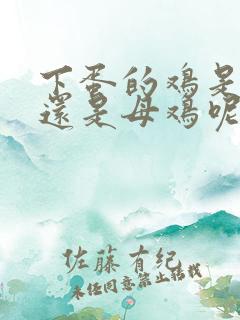 下蛋的鸡是
還是母鸡呢
佐藤有紀
未经同意禁止转载